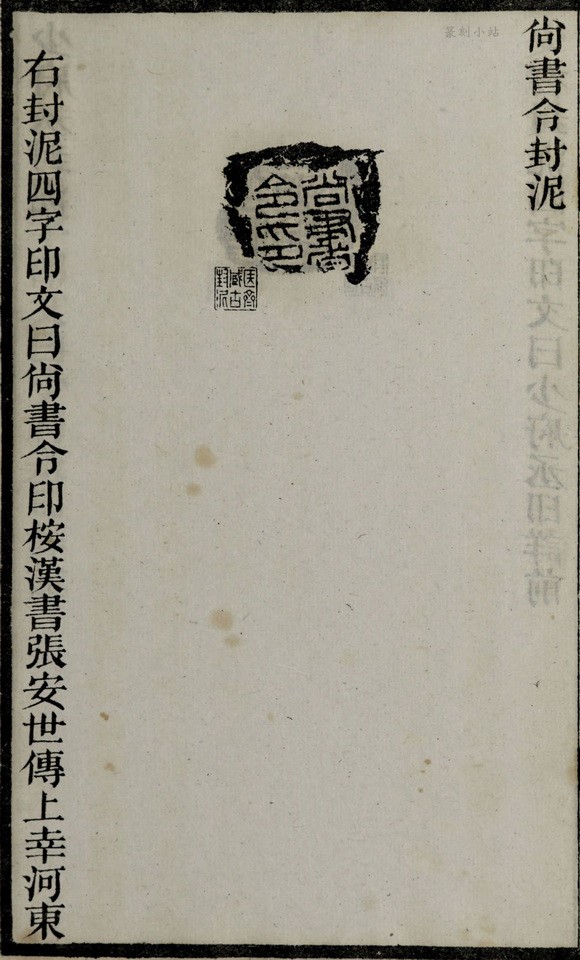 尙書令封泥
篆刻小站
尙書令印
右封泥四字印文曰尙書令印桉漢書張安世傳上幸河東